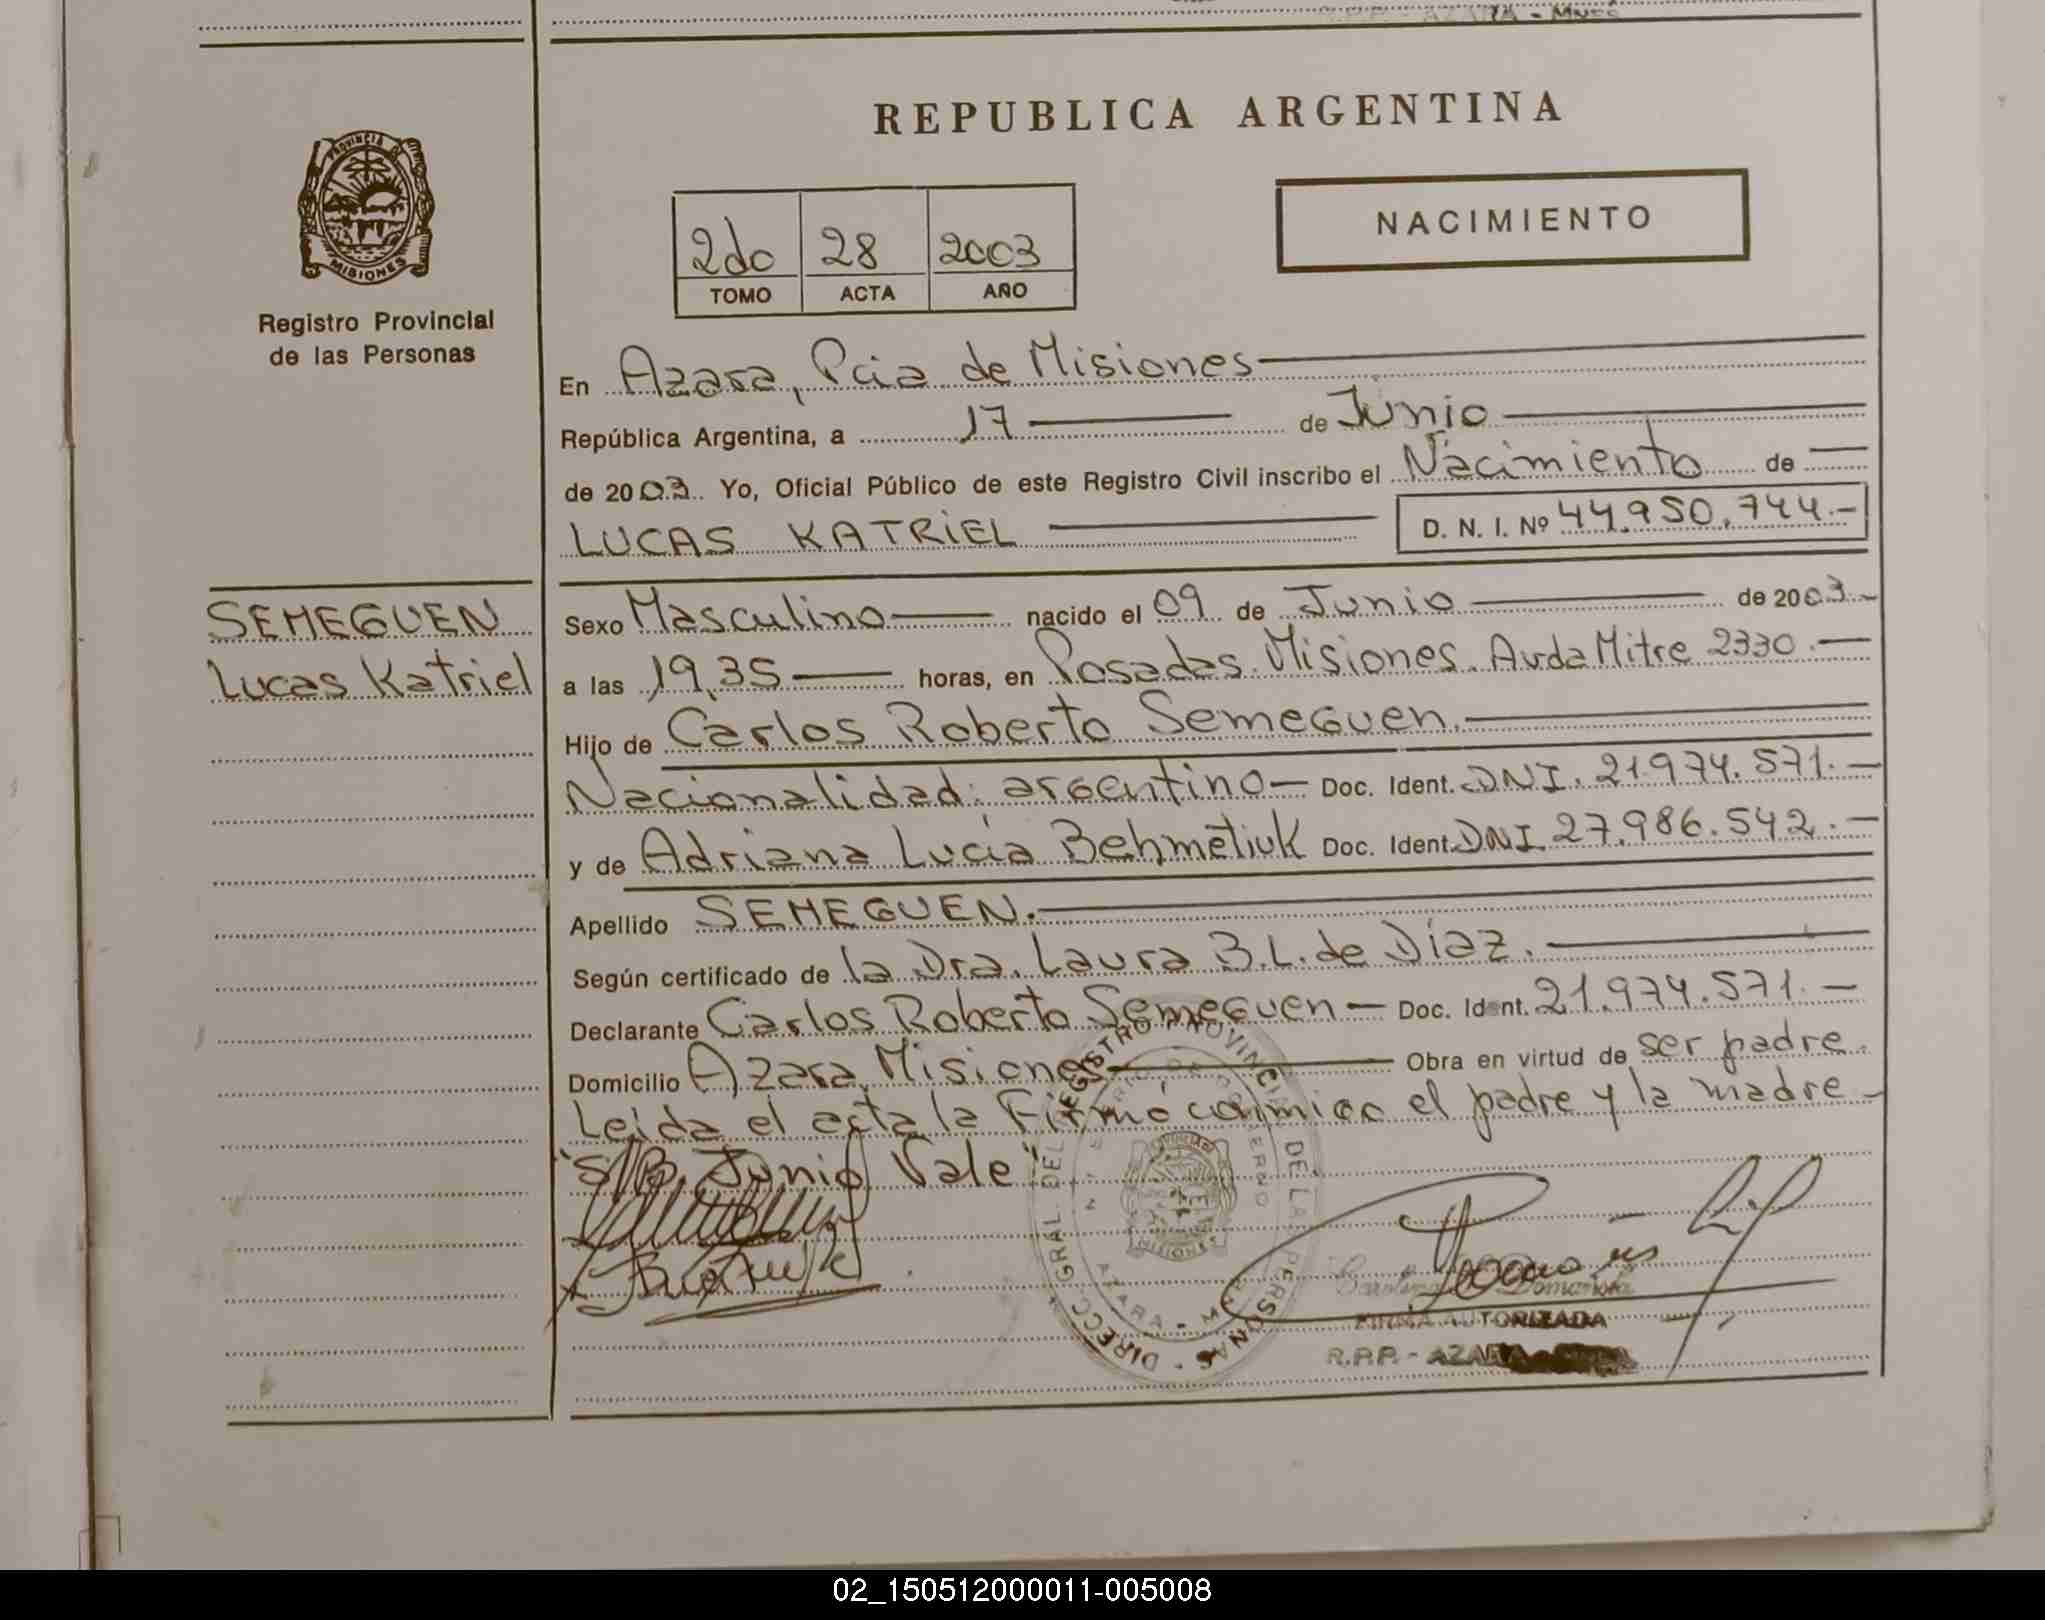 R.P.P. - AZARA - Mnes
REPUBLICA ARGENTINA
PROVINCIA DE
MISIONES
Registro Provincial
de las Personas
2do 28 2003
TOMO ACTA AÑO
NACIMIENTO
En Azara, Pcia de Misiones
República Argentina, a 17 de Junio
de 2003. Yo, Oficial Público de este Registro Civil inscribo el Nacimiento de
LUCAS KATRIEL D. N. I. Nº 44.950.744.-
SEMEGUEN
Lucas Katriel
Sexo Masculino nacido el 09 de Junio de 2003.-
a las 19,35 horas, en Posadas. Misiones. Avda Mitre 2330.-
Hijo de Carlos Roberto Semeguen.
Nacionalidad: argentino- Doc. Ident. DNI. 21.974.571.-
y de Adriana Lucía Behmetiuk Doc. Ident. DNI 27.986.542.-
Apellido SEMEGUEN.
Según certificado de la Dra. Laura B.L. de Díaz.
Declarante Carlos Roberto Semeguen - Doc. Ident. 21.974.571.-
Domicilio Azara, Misiones Obra en virtud de ser padre.
Leída el acta la Firmó conmigo el padre y la madre-
"S/B. Junio Vale"
DIRECC. GRAL. DEL REGISTRO PROVINCIAL DE LAS PERSONAS
AZARA -
MISIONES
FIRMA AUTORIZADA
R.P.P. - AZARA
02_150512000011-005008